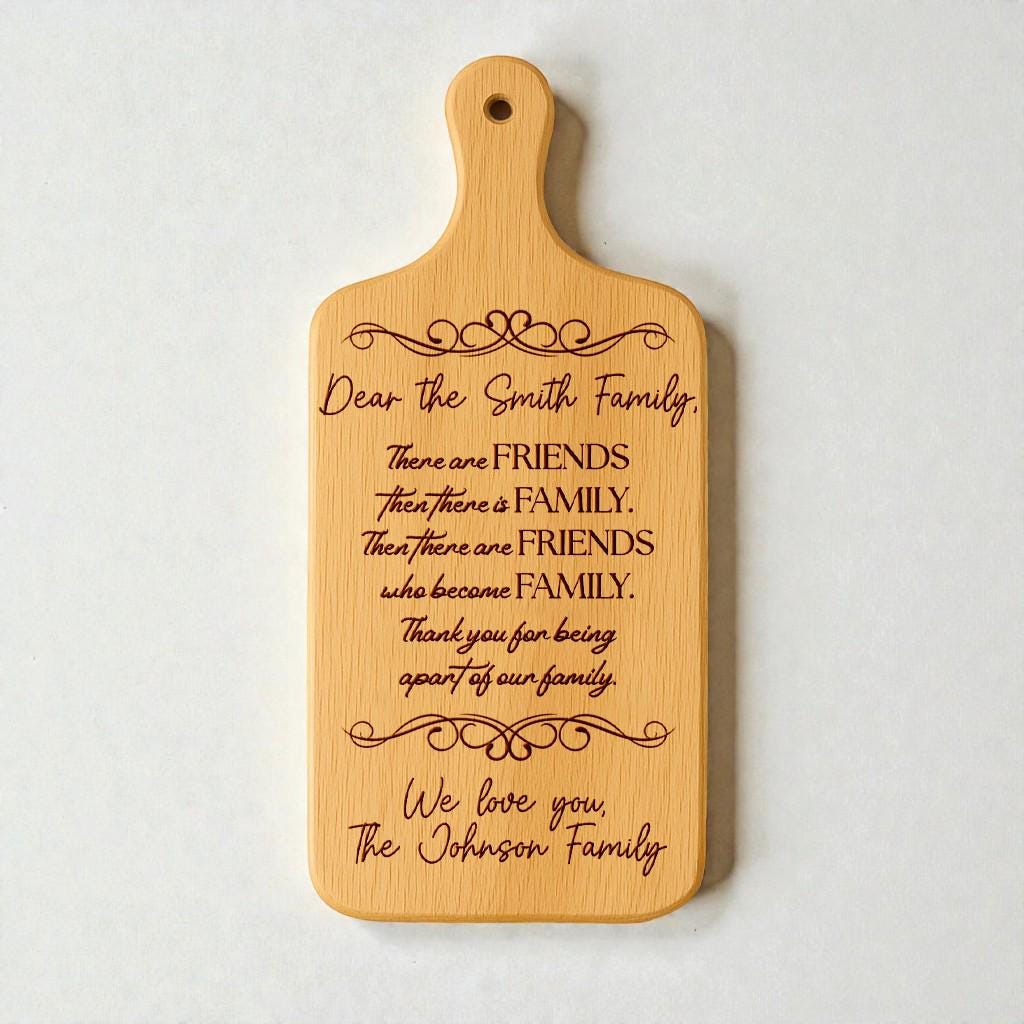 Dear the Smith Family,
There are FRIENDS
then there is FAMILY.
Then there are FRIENDS
who become FAMILY.
Thank you for being
apart of our family.
We love you,
The Johnson Family